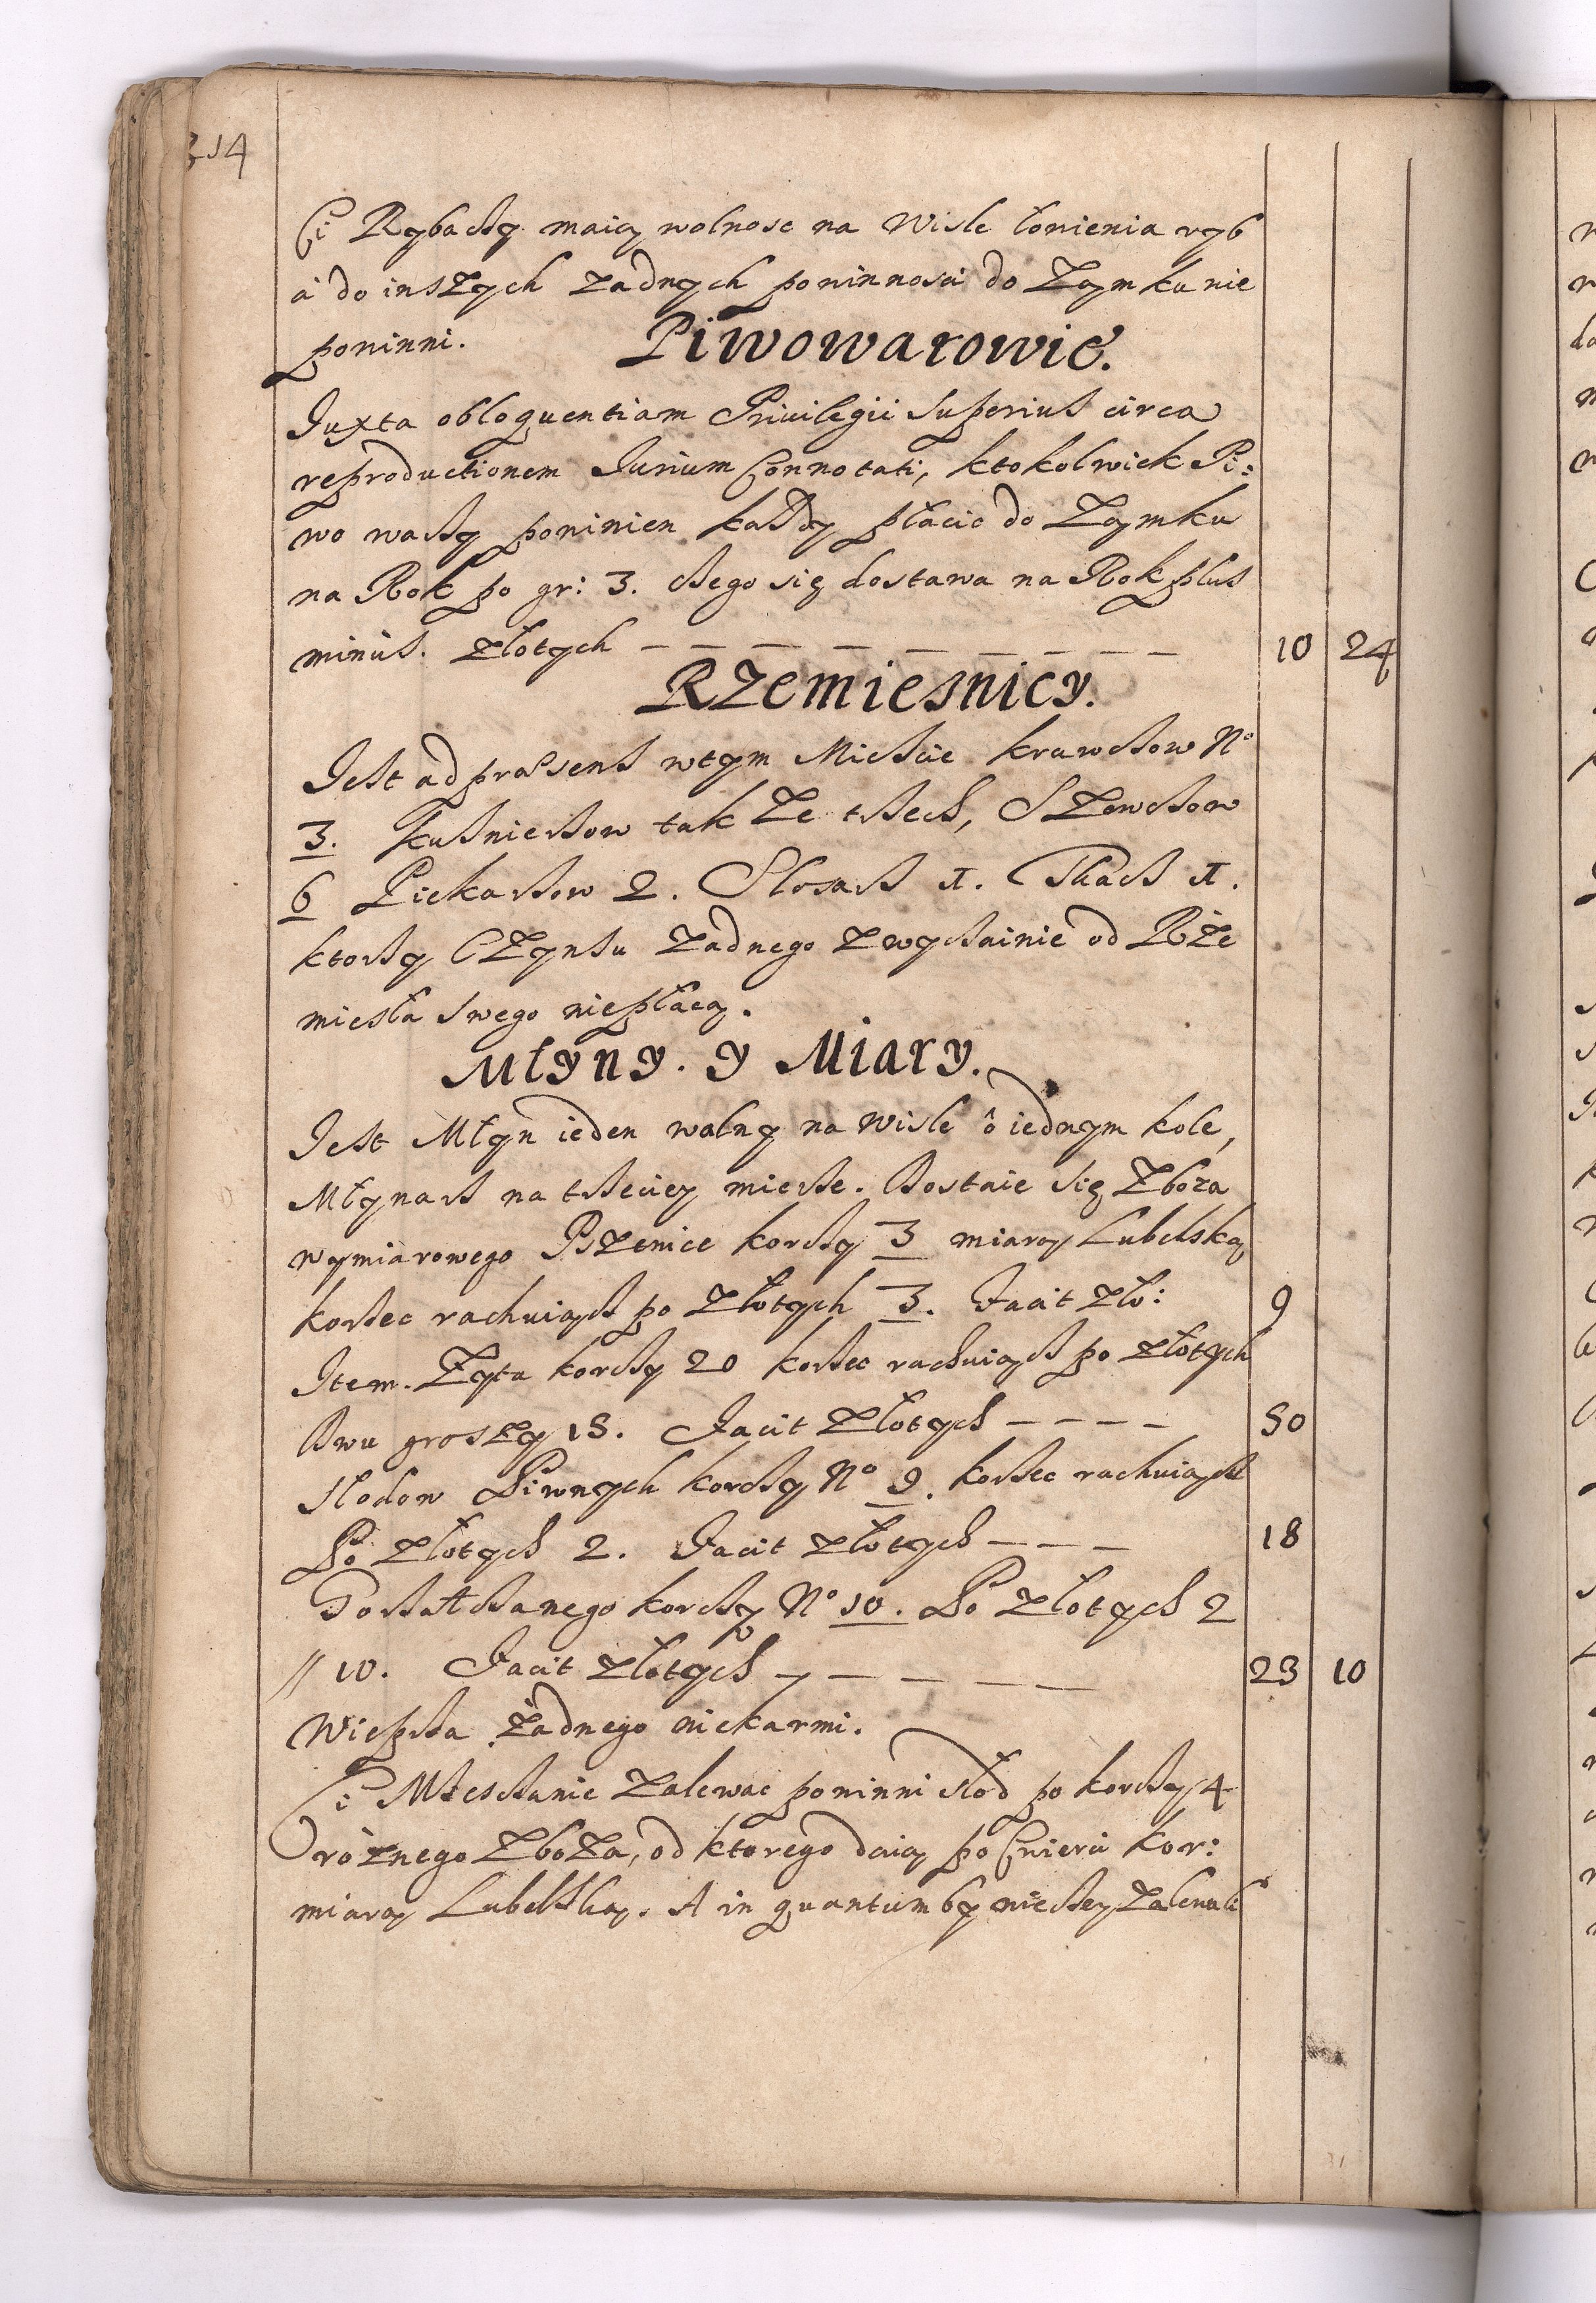 314
Ci Rybacy maią wolnosc na Wisle łowienia ryb
á do inszych zadnych powinnosci do Zamku nie
powinni. Piwowarowie.
Juxta obloquentiam Privilegii superius circa
reproductionem Jurium Connotati, ktokolwiek Pi:
wo warzy powinien kazdy płacic do Zamku
na Rok po gr: 3. czego się dostawa na Rok plus
minus. złotych — — — — — — — — 10 24
Rzemiesnicy.
Jest ad præsens wtym Miescie krawczow No
3. Kusnierzow tak Ze trzech, Szewczow
6 Piekarzow 2. Slosarz 1. Tkacz 1.
ktorzy Czynszu Zadnego Zwyczainie od Rze
miesła swego niepłacą.
Młyny. y Miary.
Jest Młyn ieden walny na Wisle ô iednym kole,
Młynarz na trzeciey mierze. Dostaie się Zboza
wymiarowego Pszenice korcy 3 miarą Lubelską
korzec rachuiąc po Złotych 3. Facit zło: 9
Item. Zyta korcy 20 korzec rachuiąc po złotych
Dwu groszy 15. Facit Złotych — — — — 50
Słodow Piwnych korcy No 9. korzec rachuiąc
Po Złotych 2. Facit złotych — — — 18
korcy No 10. Po Złotych 2
// 10. Facit złotych — — — — — 23 10
Wieprza Żadnego niekarmi.
Ci Mieszczanie Zalewac powinni słod po korcy 4
roznego Zboza, od ktorego daią po Cwierci kor:
miarą Lubelską. A in quantum by Zalewali